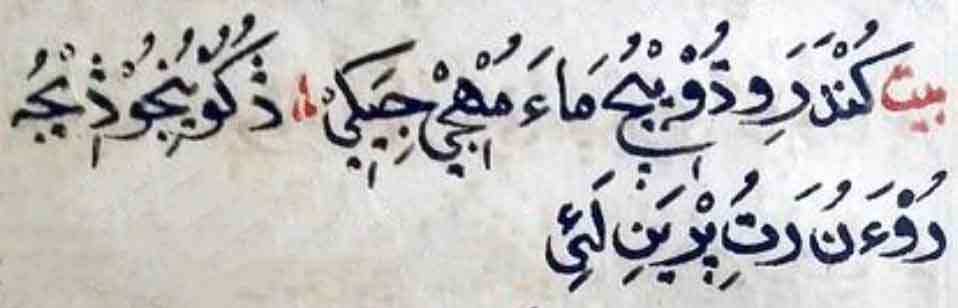 بيت كُنْدَرَ وِ دُوْ بِيْجُ مَاءَ مُهْجِيْ جِيَكِيْ ذُكُوْ يُنْجُوْ ذِيْجُهُ
رُوْءَ نُ رَتُ پِرْيَنِ لَئِي